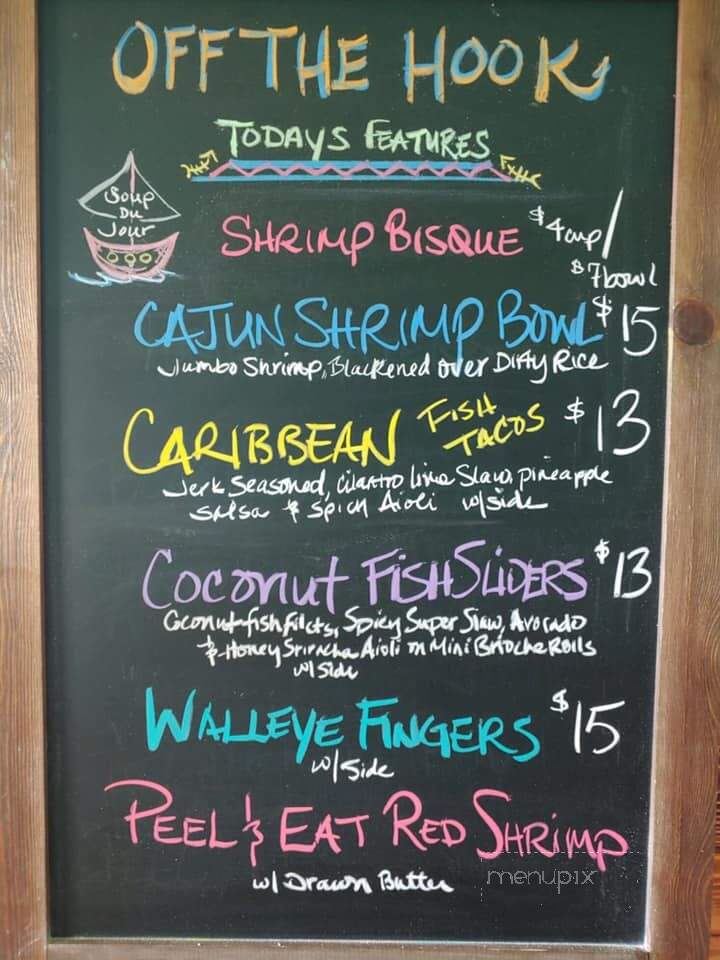 OFF THE HOOK
TODAYS FEATURES
Soup
Du
Jour
SHRIMP BISQUE $4cup/
$7bowl
CAJUN SHRIMP BOWL $15
Jumbo Shrimp, Blackened over Dirty Rice
CARIBBEAN FISH TACOS $13
Jerk Seasoned, cilantro lime Slaw, pineapple
Salsa & Spicy Aioli w/side
COCONUT FISH SLIDERS $13
Coconut fish filets, Spicy Super Slaw, Avocado
& Honey Sriracha Aioli on Mini Brioche Rolls
w/ Side
WALLEYE FINGERS $15
w/ Side
PEEL & EAT RED SHRIMP
w/ Drawn Butter
menupix